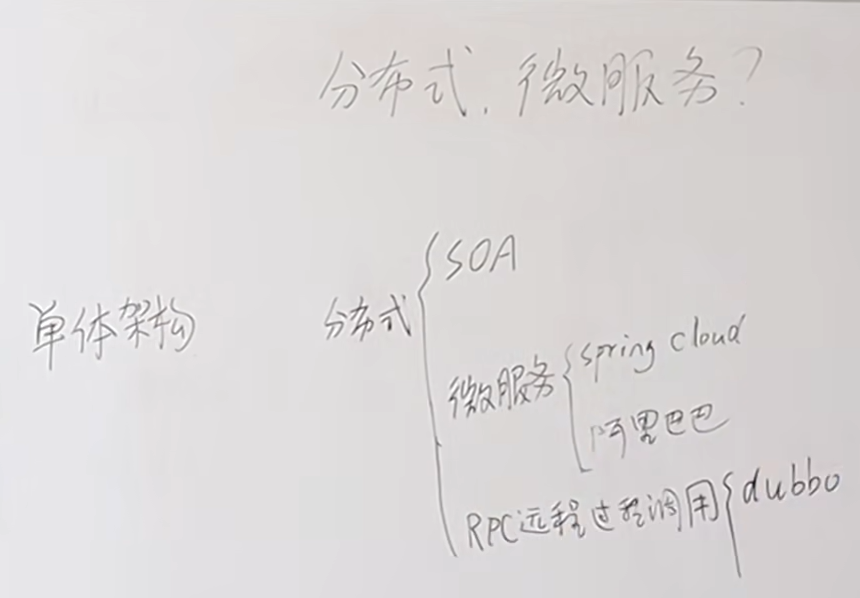 分布式，微服务？
SOA
单体架构
分布式
微服务
spring cloud
阿里巴巴
RPC远程过程调用
dubbo